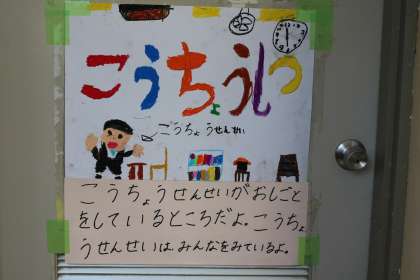 こうちょうしつ
こうちょうせんせい
こうちょうせんせいがおしごと
をしているところだよ。こうちょ
うせんせいは、みんなをみているよ。